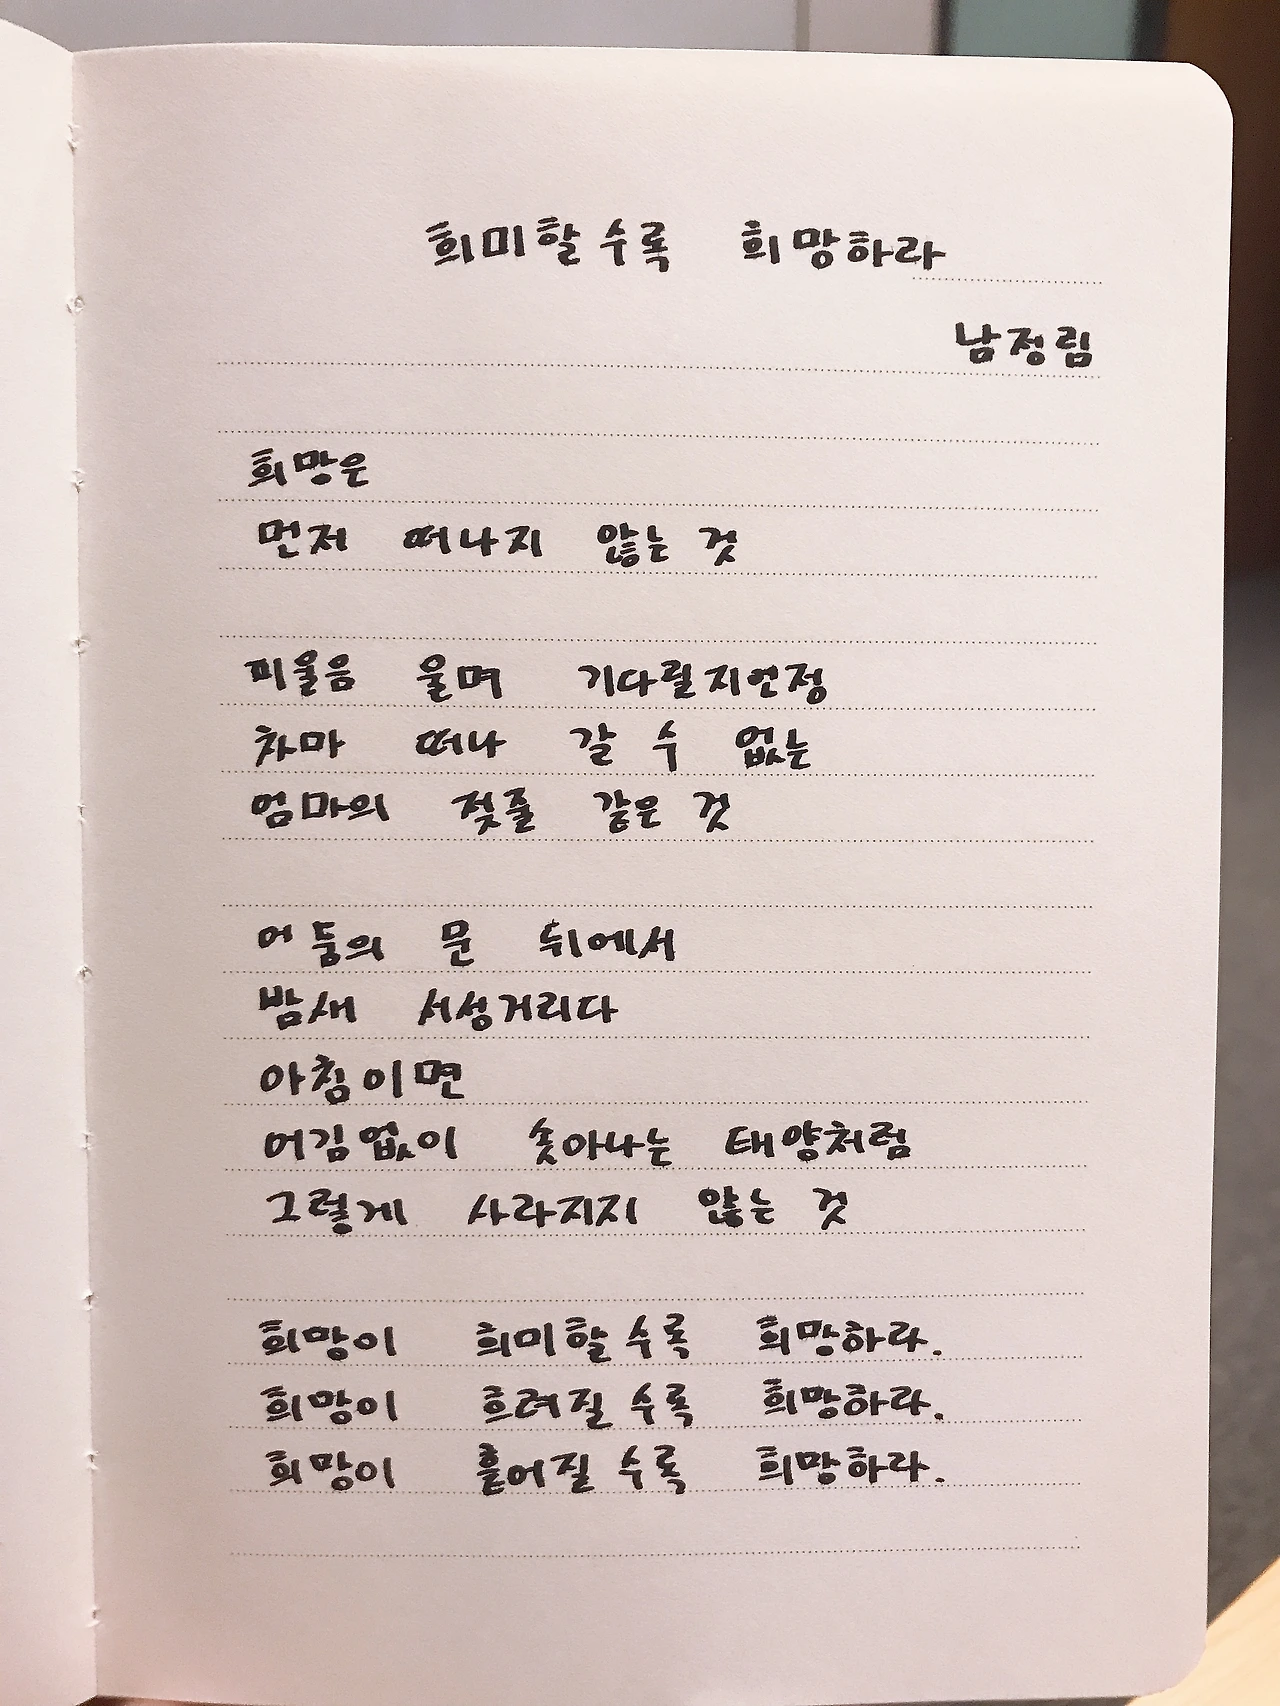 희미할수록 희망하라
남정림
희망은
먼저 떠나지 않는 것
피울음 울며 기다릴지언정
차마 떠나 갈 수 없는
엄마의 젖줄 같은 것
어둠의 문 뒤에서
밤새 서성거리다
아침이면
어김없이 솟아나는 태양처럼
그렇게 사라지지 않는 것
희망이 희미할수록 희망하라.
희망이 흐려질수록 희망하라.
희망이 흩어질수록 희망하라.